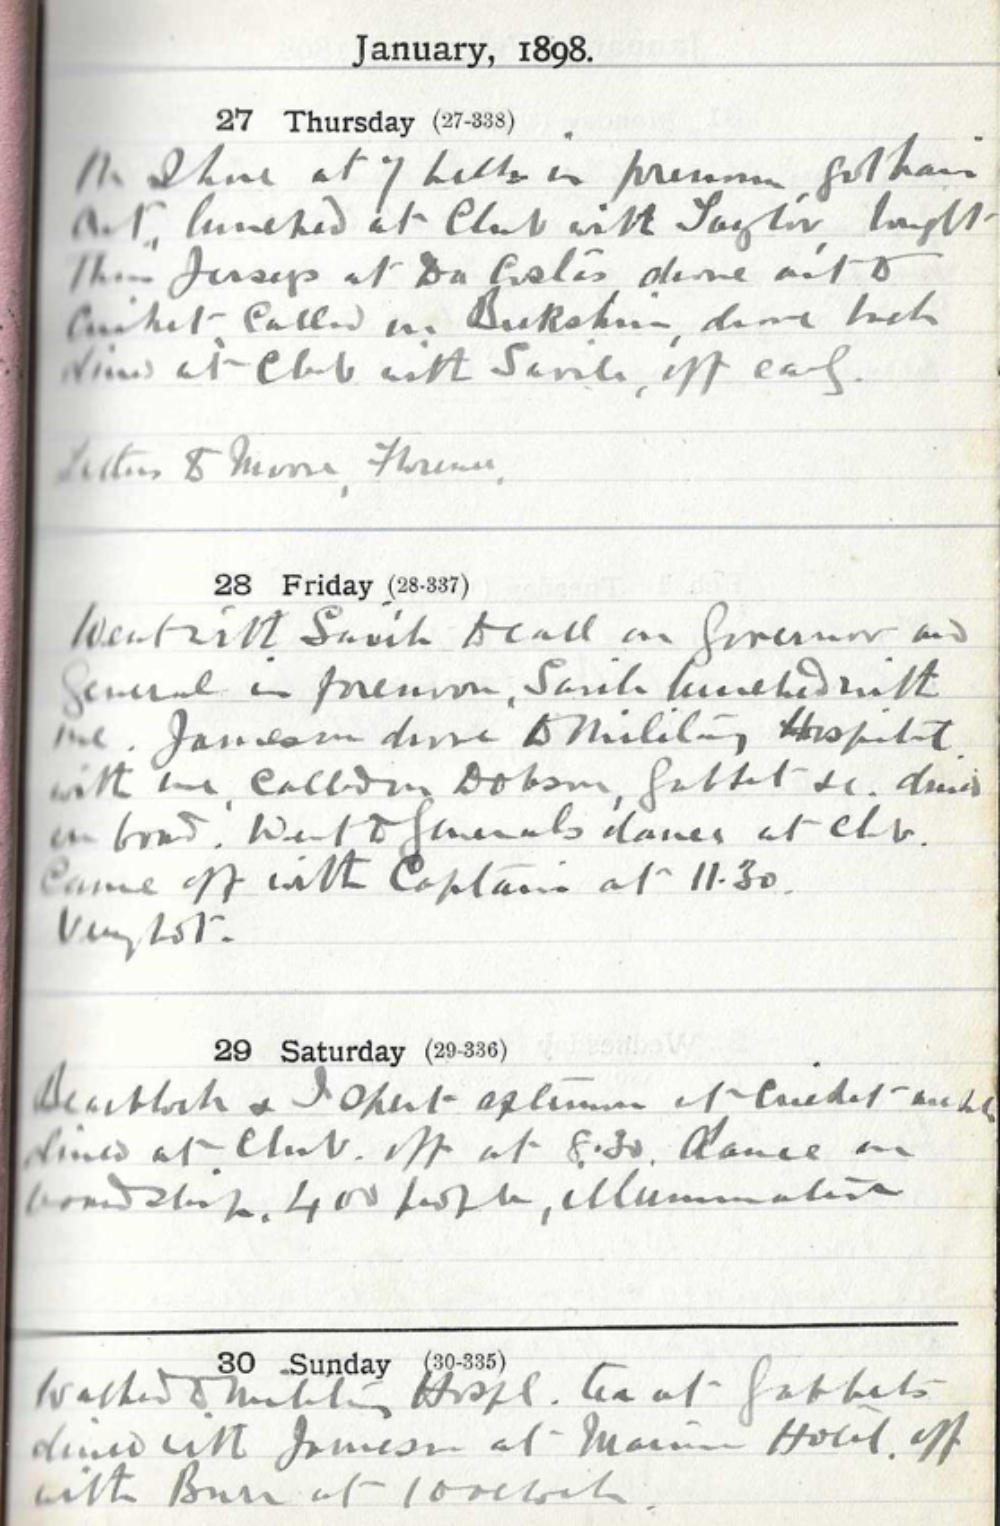 January, 1898.
27 Thursday (27-338)
On Shore at 7 bells in forenoon, got hair
cut, lunched at Club with Taylor, bought
Jerseys at Da Costas drove out to
Cricket Called on Berkshire, drove back
dined at Club with Savile, off early.
Letters to Moore, Florence,
28 Friday (28-337)
Went with Savile to call on Governor and
General in forenoon, Savile lunched with
me. Jameson drove to Military Hospital
with me, called on Dobson, Gabbet &c. dined
on board. Went to Generals dance at Club.
Came off with Captain at 11.30.
Very hot.
29 Saturday (29-336)
& I spent afternoon at Cricket match
dined at Club. off at 8.30. Dance on
board ship. 400 people, illumination
30 Sunday (30-335)
Walked to Military Hospl. tea at Gabbets
dined with Jameson at Marine Hotel. off
with at 10 oclock.